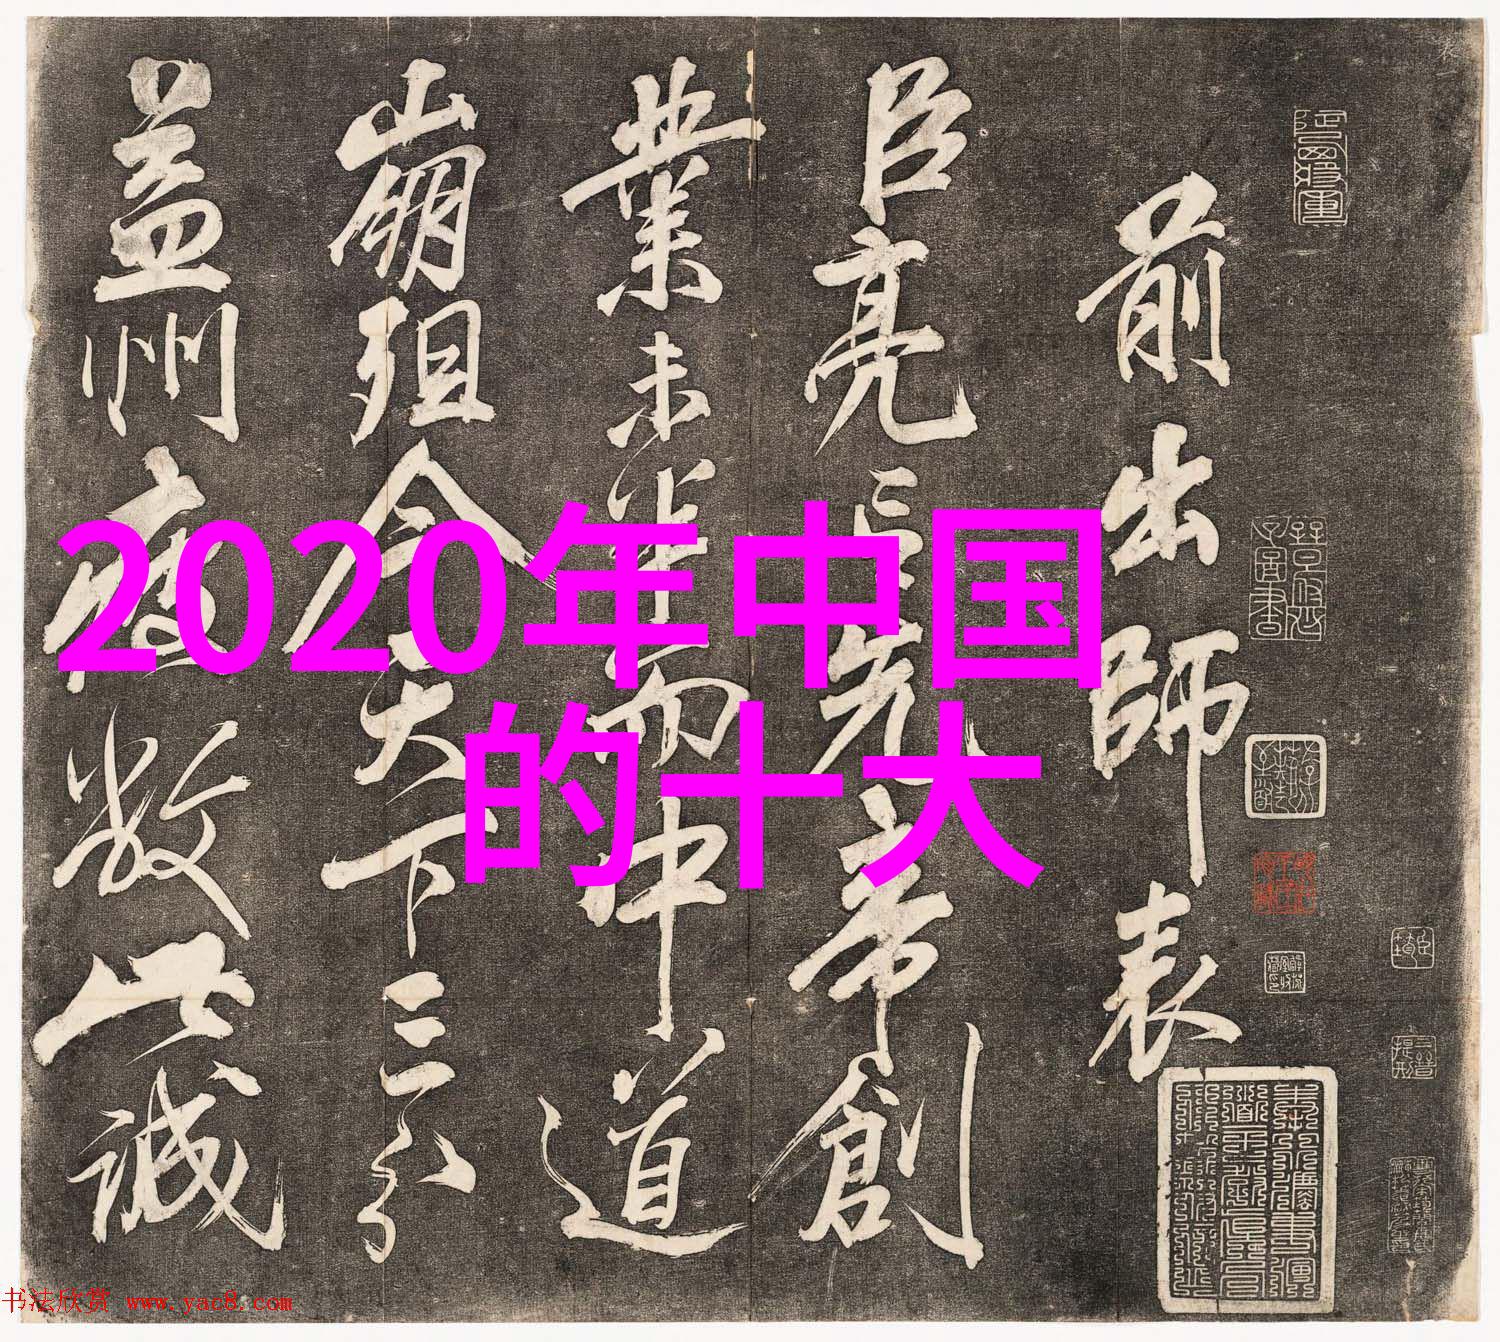 前出師表
臣亮言先帝創
業未半而中道
崩殂今天下三分
益州疲敝此誠
2020年中国
的十大
书法欣赏 www.yac8.com